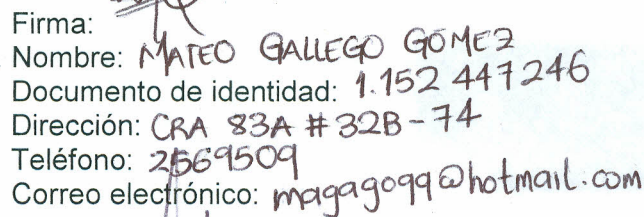 Firma:
Nombre: MATEO GALLEGO GOMEZ
Documento de identidad: 1.152 447246
Dirección: CRA 83A # 32B-74
Teléfono: 2569509
Correo electrónico: magago99@hotmail.com